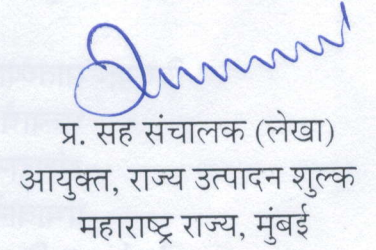 प्र. सह संचालक (लेखा)
आयुक्त, राज्य उत्पादन शुल्क
महाराष्ट्र राज्य, मुंबई